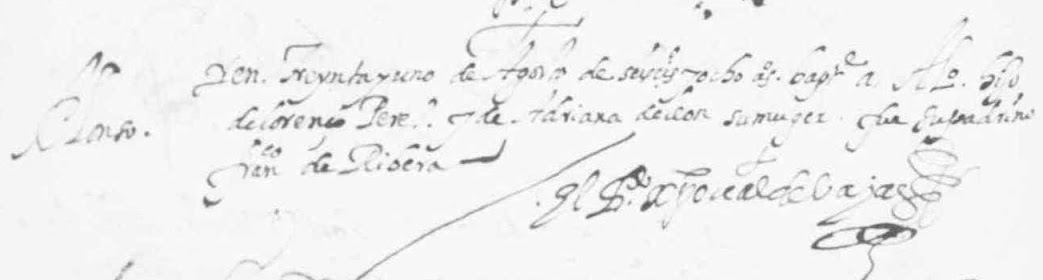 Alonso.
Yen. Treynta y uno de Agosto de seyscis y ocho as. bapte. a Alo. hijo
de lorenço Perez. y de Adriana de leon su muger. fue su padrino
franco de Ribera
El Pe. Xpoual de Vajas